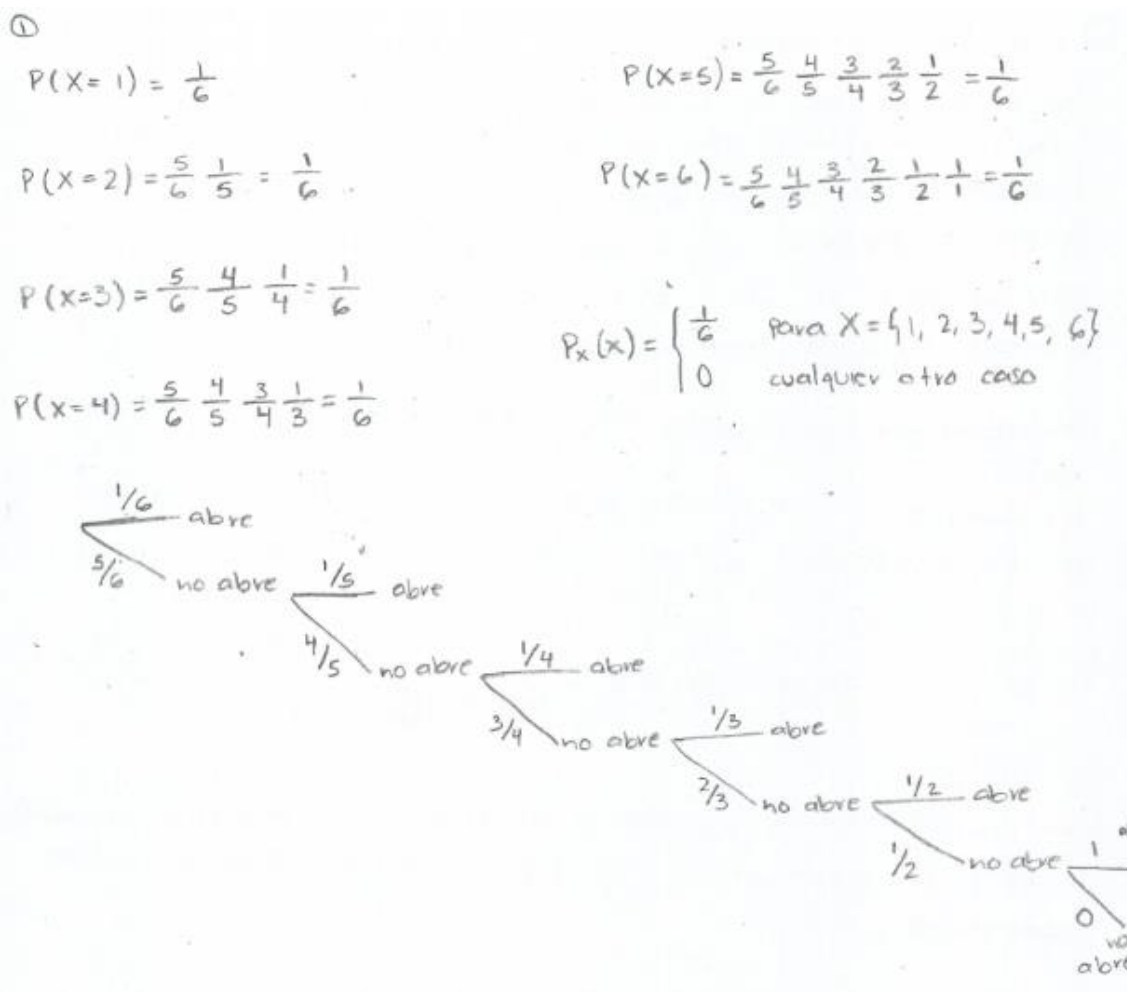 ①
P(X= 1) = 1/6
P(X=2) = 5/6 1/5 = 1/6
P(X=3) = 5/6 4/5 1/4 = 1/6
P(X=4) = 5/6 4/5 3/4 1/3 = 1/6
P(X=5) = 5/6 4/5 3/4 2/3 1/2 = 1/6
P(X=6) = 5/6 4/5 3/4 2/3 1/2 1/1 = 1/6
Px(x) = { 1/6 para X = {1, 2, 3, 4, 5, 6}
0 cualquier otro caso
1/6 abre
5/6 no abre 1/5 abre
4/5 no abre 1/4 abre
3/4 no abre 1/3 abre
2/3 no abre 1/2 abre
1/2 no abre 1
0 no
abre